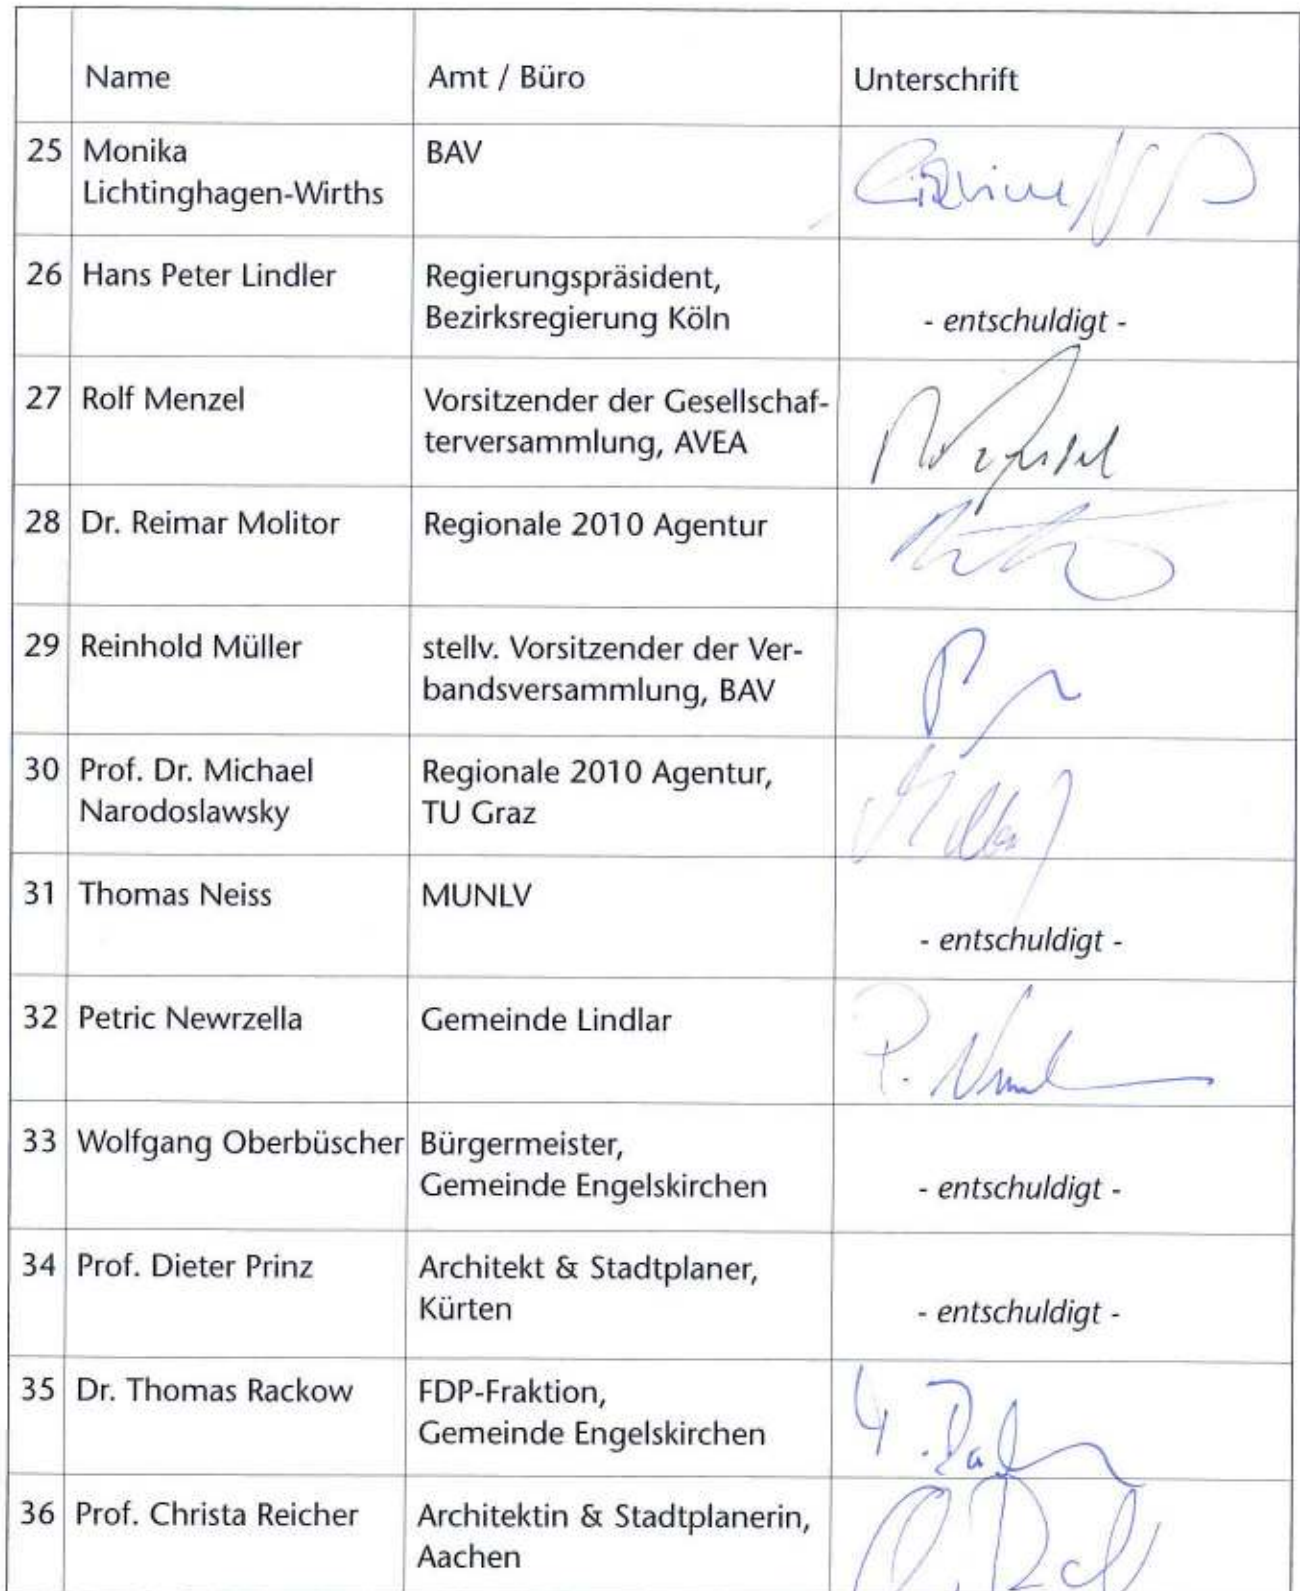 Name Amt / Büro Unterschrift
25 Monika BAV
Lichtinghagen-Wirths
26 Hans Peter Lindler Regierungspräsident,
Bezirksregierung Köln - entschuldigt -
27 Rolf Menzel Vorsitzender der Gesellschaf-
terversammlung, AVEA
28 Dr. Reimar Molitor Regionale 2010 Agentur
29 Reinhold Müller stellv. Vorsitzender der Ver-
bandsversammlung, BAV
30 Prof. Dr. Michael Regionale 2010 Agentur,
Narodoslawsky TU Graz
31 Thomas Neiss MUNLV
- entschuldigt -
32 Petric Newrzella Gemeinde Lindlar
33 Wolfgang Oberbüscher Bürgermeister,
Gemeinde Engelskirchen - entschuldigt -
34 Prof. Dieter Prinz Architekt & Stadtplaner,
Kürten - entschuldigt -
35 Dr. Thomas Rackow FDP-Fraktion,
Gemeinde Engelskirchen
36 Prof. Christa Reicher Architektin & Stadtplanerin,
Aachen